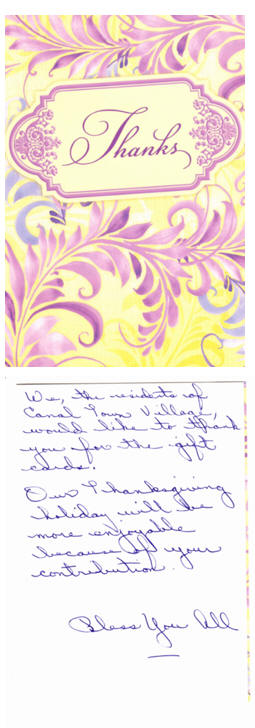 Thanks
We, the residents of
Canal Town Village,
would like to thank
you for the gift
cards.
Our Thanksgiving
holiday will be
more enjoyable
because of your
contribution.
Bless You All